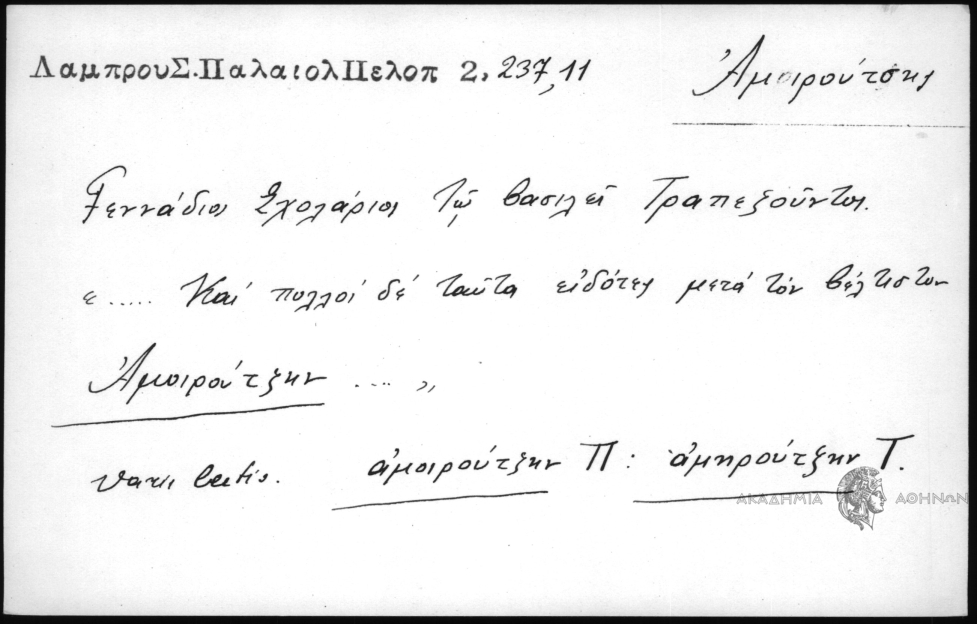 ΛαμπρουΣ.ΠαλαιολΠελοπ 2, 237,11
Ἀμοιρούτσης
Γεννάδιος Σχολάριος τῷ βασιλεῖ Τραπεζοῦντος.
« ..... Καί πολλοί δέ ταῦτα εἰδότες μετά τόν βέλτιστον
Ἀμοιρούτζην .... »
varia lectio. ἀμοιρούτζην Π: ἀμηρούτζην Τ.
ΑΚΑΔΗΜΙΑ ΑΘΗΝΩΝ